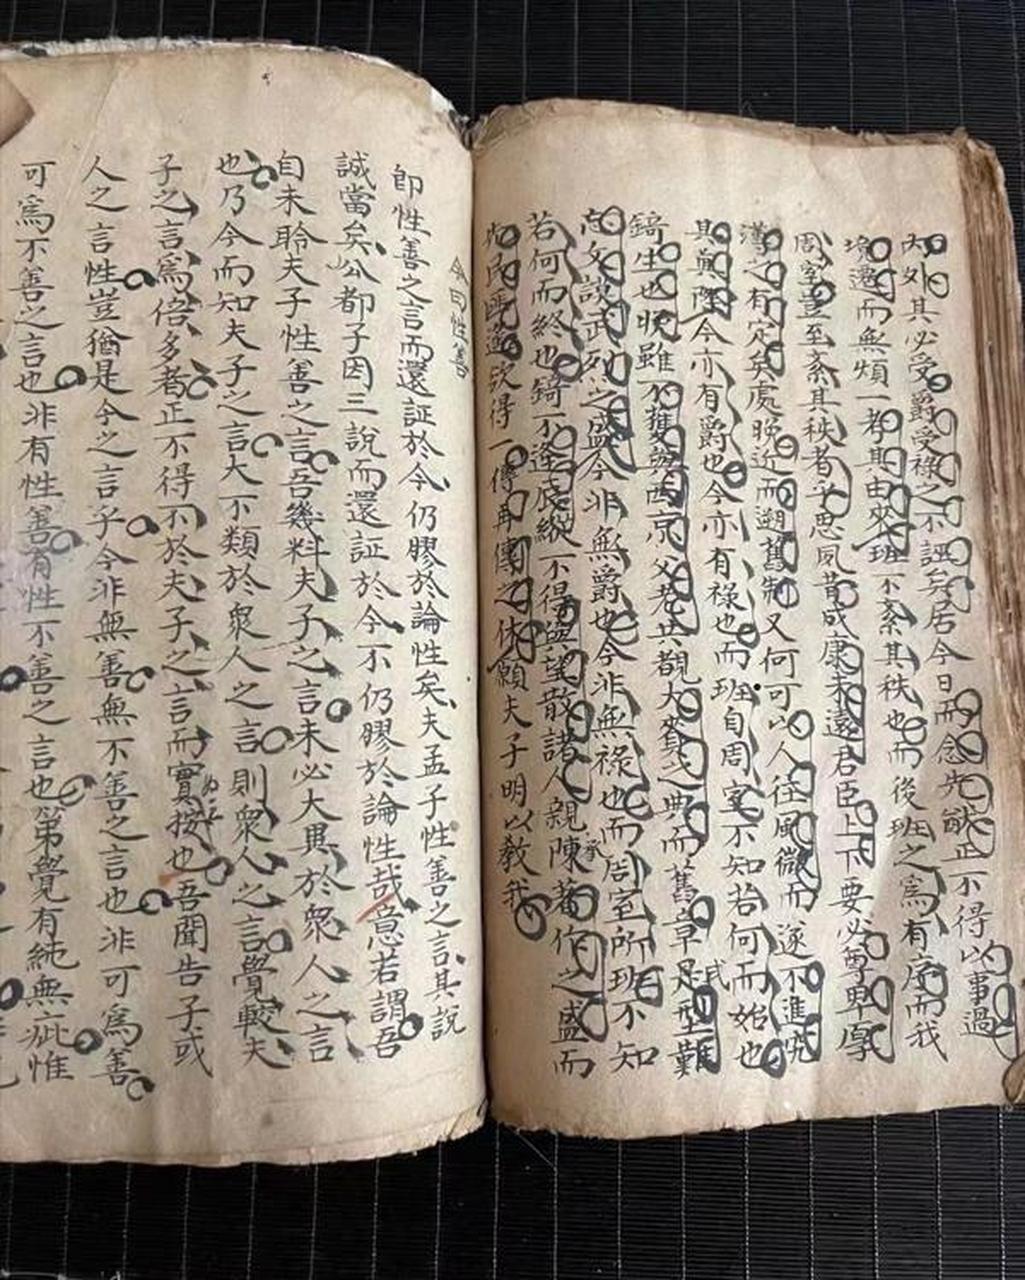 內外其必受爵受祿之不誣矣居今日而念先猷正不得以事過
遷而無煩一考其由來班不紊其秩也而後班之爲有序而我
周室豈至紊其秩者乎思夙昔成康未遠君臣上下要必尊卑厚
薄之有定矣處晚近而溯舊制又何可以人往風微而遂不進究
其奧隆今亦有爵也今亦有祿也而班自周室不知若何而始也
錡生也晚雖不獲從西京父老共覩大賚之典而舊章是式難
忘文謨武烈之盛今非無爵也今非無祿也而周室所班不知
若何而終也錡不逢底縱不得與望散諸人親陳著作之盛而
一傳再傳之休願夫子明以教我
今曰性善
卽性善之言而還証於今仍膠於論性矣夫孟子性善之言其說
誠當矣公都子因三說而還証於今不仍膠於論性哉意若謂吾
自未聆夫子性善之言吾幾料夫子之言未必大異於衆人之言
也乃今而知夫子之言大不類於衆人之言則衆人之言覺較夫
子之言爲倍多者正不得不於夫子之言而實按也吾聞告子或
人之言性豈猶是今之言乎今非無善無不善之言也非可爲善
可爲不善之言也非有性善有性不善之言也第覺有純無疵惟